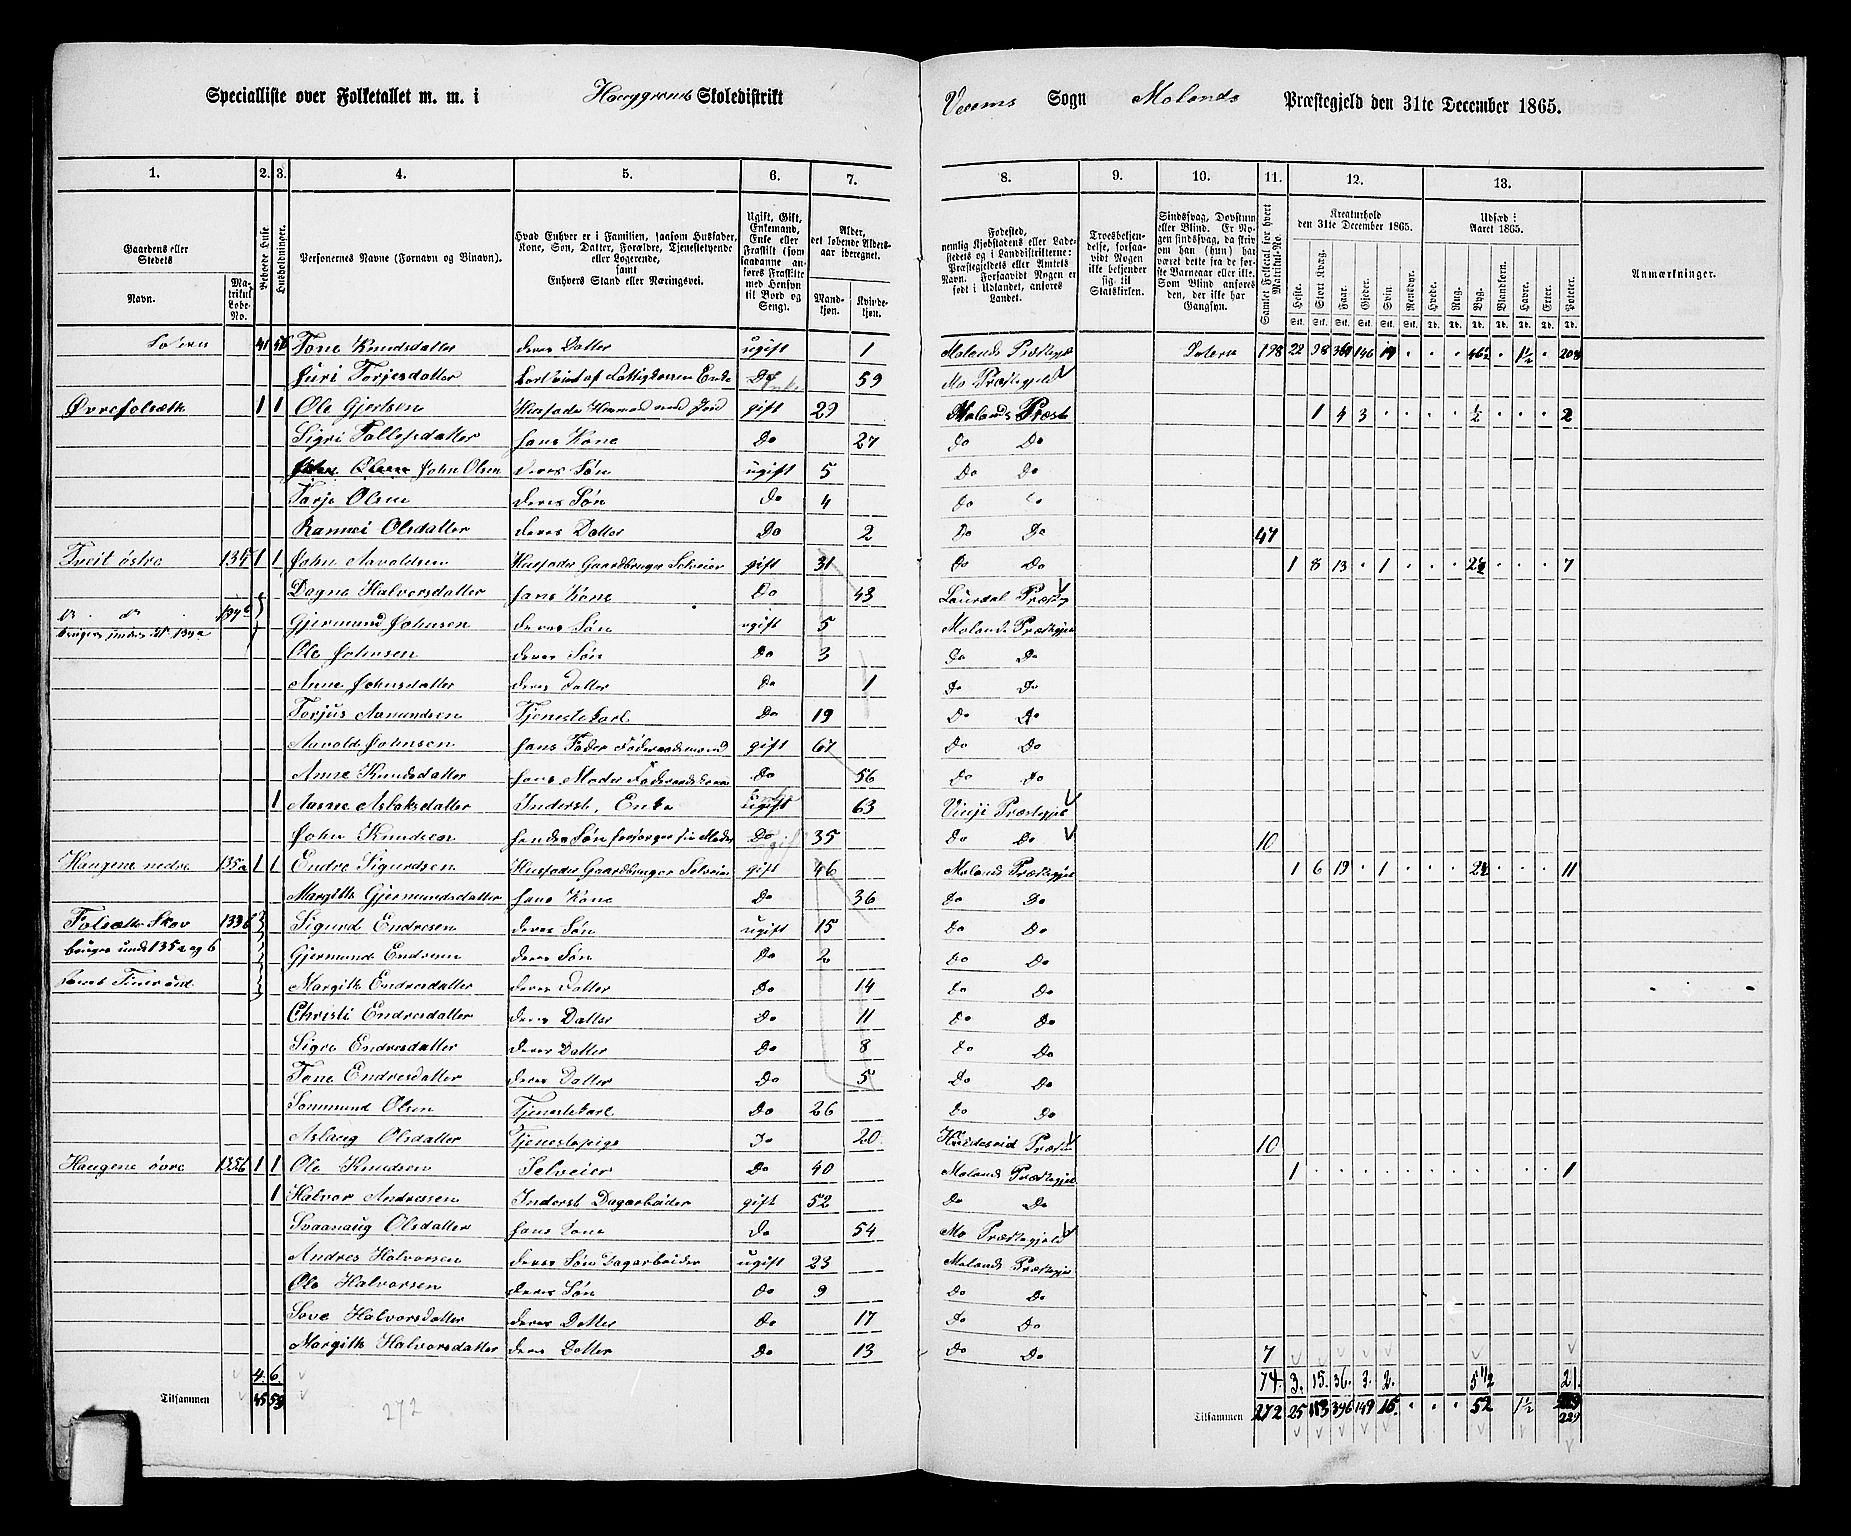 Specialliste over Folketallet m. m. i Skoledistrikt Sogn Molands Præstegjeld den 31te December 1865.
1. 2. 3. 4. 5. 6. 7. 8. 9. 10. 11. 12. 13.
Gaardens eller Stedets Navn. Matrikul Løbe-No. Beboede Huse Husholdninger. Personernes Navne (Fornavn og Tilnavn). Hvad Enhver er i Familien, saasom Husfader, Kone, Søn, Datter, Forældre, Tjenestetyende eller Logerende, samt Enhvers Stand eller Næringsvei. Ugift, Gift, Enkemand, Enke eller Fraskilt (som saadanne anføres Fraskilte med Hensyn til Bord og Seng). Alder, det løbende Alders-aar iberegnet. Mandkjøn. Kvindekjøn. Fødested, nemlig Kjøbstadens eller Ladestedets og i Landdistrikterne: Præstegjeldets eller Amtets Navn. Forsaavidt Nogen er født i Udlandet, anføres Landet. Troesbekjendelse, forsaavidt Nogen ikke bekjender sig til Statskirken. Sindssvag, Døvstum eller Blind. Er Nogen sindssvag, da skriv om han (hun) har været dette fra de første Barneaar eller ikke. Som Blind anføres den, der ikke har Gangsyn. Samlet Folketal for hvert Matrikul-No. Kreaturhold den 31te December 1865. Heste. Stort Kvæg. Faar. Gjeder. Svin. Rensdyr. Udsæd i Aaret 1865. Hvede. Rug. Byg. Blandkorn. Havre. Erter. Poteter. Anmærkninger.
Tone Knudsdatter deres Datter ugift 1 Molands 198 22 98 146 46½ 1½ 208
Juri Torjesdatter 59 Mo Præstegjeld
Øvrefolsæth 1 1 Ole Gjertsen gift 29 Molands Præst 1 4 3 ½ 2
Sigri Tallefsdatter hans Kone Do 27 Do Do
John Olsen deres Søn ugift 5 Do Do
Tarje Olsen deres Søn Do 4 Do
Rannei Olsdatter deres Datter Do 2 Do Do 47
Tveit østre 134 1 1 John Aavoldsen Husfader Gaardbruger Selveier gift 31 Do Do 1 8 13 1 7
Dagne Halvorsdatter hans Kone Do 43 Laurdal
Gjermund Johnsen deres Søn ugift 5
Ole Johnsen deres Søn Do 3 Do Do
Anne Johnsdatter deres Datter Do 1 Do Do
Torjus Aamundsen Tjenestekarl Do 19 Do Do
Aavold Johnsen hans Fader gift 67 Do Do
Anne Knudsdatter hans Moder Do 56 Do Do
1 Aasne Aslaksdatter Inderst, Enke ugift 63 Vinje
John Knudsen hendes Søn forsørger sin Moder Do 35 Do Do 10
Haugene nedre 135a 1 1 Endre Sigurdsen Husfader Gaardbruger Selveier gift 46 1 6 19 1 11
Margith Gjermundsdatter hans Kone Do 36 Do Do
Folsæth Skov Sigurd Endresen deres Søn ugift 15 Do Do
bruges under 135 a og b Gjermund Endresen deres Søn Do 2 Do Do
Margith Endresdatter deres Datter Do 14 Do Do
Christi Endresdatter deres Datter Do 11 Do Do
Sigri Endresdatter deres Datter Do 8 Do Do
Tone Endresdatter deres Datter Do 5 Do Do
Sommund Olsen Tjenestekarl Do 26 Do Do
Aslaug Olsdatter Tjenestepige Do 20 10
Haugene øvre 135b 1 1 Ole Knudsen Selveier Do 40 1 1
1 Halvor Andressen Inderst Dagarbeider gift 52 Do Do
Svaanaug Olsdatter hans Kone Do 54 Mo Præstegjeld
Andres Halvorsen deres Søn Dagarbeider ugift 23
Ole Halvorsen deres Søn Do 9 Do Do
Sove Halvorsdatter deres Datter Do 17 Do Do
Margith Halvorsdatter deres Datter Do 13 Do Do 7
4. 6. 74. 3. 15. 36. 3. 2. 5½ 21.
Tilsammen 45 59 Tilsammen 272 25 113 149 52 1½ 229
272